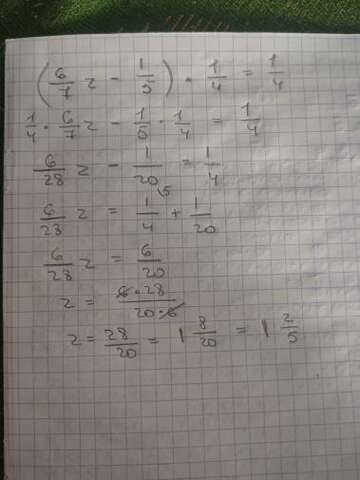 (6/7 z - 1/5) · 1/4 = 1/4
1/4 · 6/7 z - 1/5 · 1/4 = 1/4
6/28 z - 1/20 = 1/4
6/28 z = 1/4 \5 + 1/20
6/28 z = 6/20
z = 6·28/20·6
z = 28/20 = 1 8/20 = 1 2/5